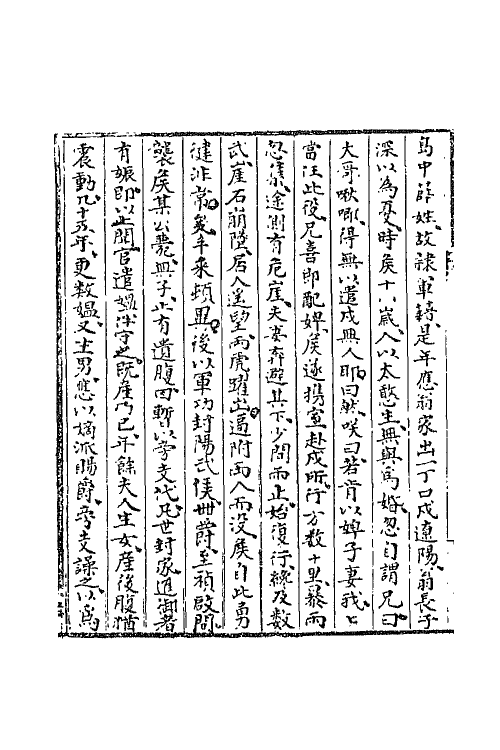 島中薛姓故隸軍籍是年應翁家出一丁口戍遼陽翁長子
深以為憂時侯十八歲人以太憨生無與為婚忽自謂兄曰
大哥啾唧得無以遣戍無人耶曰然咲曰若肯以婢子妻我我
當任此役兄喜即配婢侯遂攜室赴戍所行方数十里暴雨
忽集途側有危崖夫妻奔避其下少間雨止始復行纔及数
武崖石崩墜居人遙望兩虎躍出逼附兩人而沒侯自此勇
健非常丰采頓異後以軍功封陽武侯世爵至禎啟間
襲侯某公薨無子止有遺腹因暫以旁支代凡世封家進御者
有娠即以上聞官遣媼伴守之既產乃已年餘夫人生女產後腹猶
震動凡十五年更数媼又生男應以嫡派賜爵旁支譟之以為